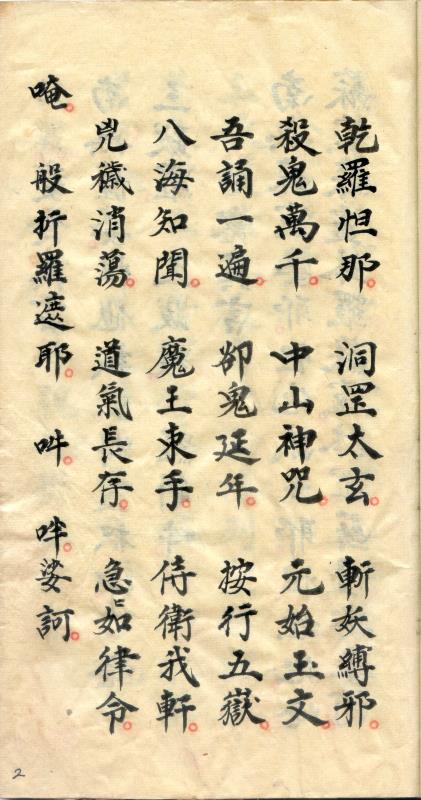 乾羅怛那。洞罡太玄。斬妖縛邪。
殺鬼萬千。中山神咒。元始玉文。
吾誦一遍。卻鬼延年。按行五嶽。
八海知聞。魔王束手。侍衛我軒。
兇穢消蕩。道氣長存。急〻如律令。
唵。般折羅遮耶。吽。吽娑訶。
2